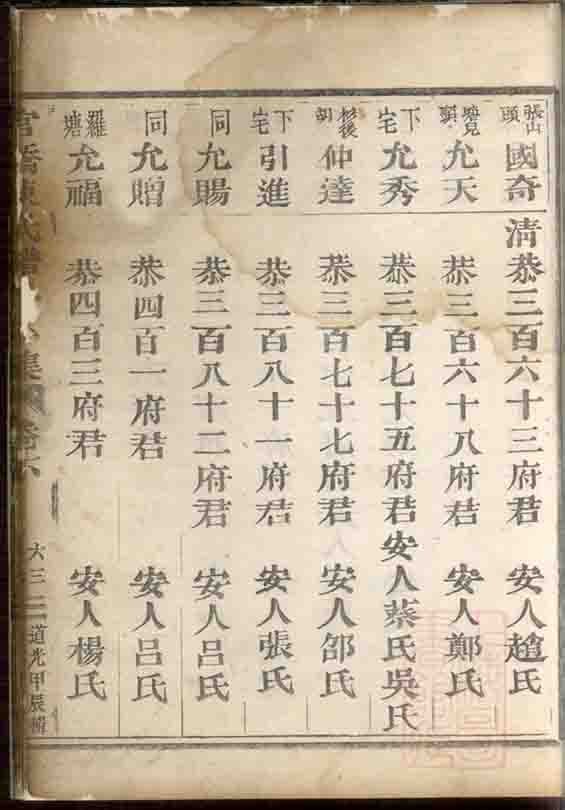 張山頭 國奇 清恭三百六十三府君 安人趙氏
塘見頭 允天 恭三百六十八府君 安人鄭氏
下宅 允秀 恭三百七十五府君 安人蔡氏吳氏
杉後 仲達 恭三百七十七府君 安人邵氏
下宅 引進 恭三百八十一府君 安人張氏
同 允賜 恭三百八十二府君 安人呂氏
同 允贈 恭四百一府君 安人呂氏
羅塘 允福 恭四百三府君 安人楊氏
官橋陳氏譜 集 六三 道光甲辰輯